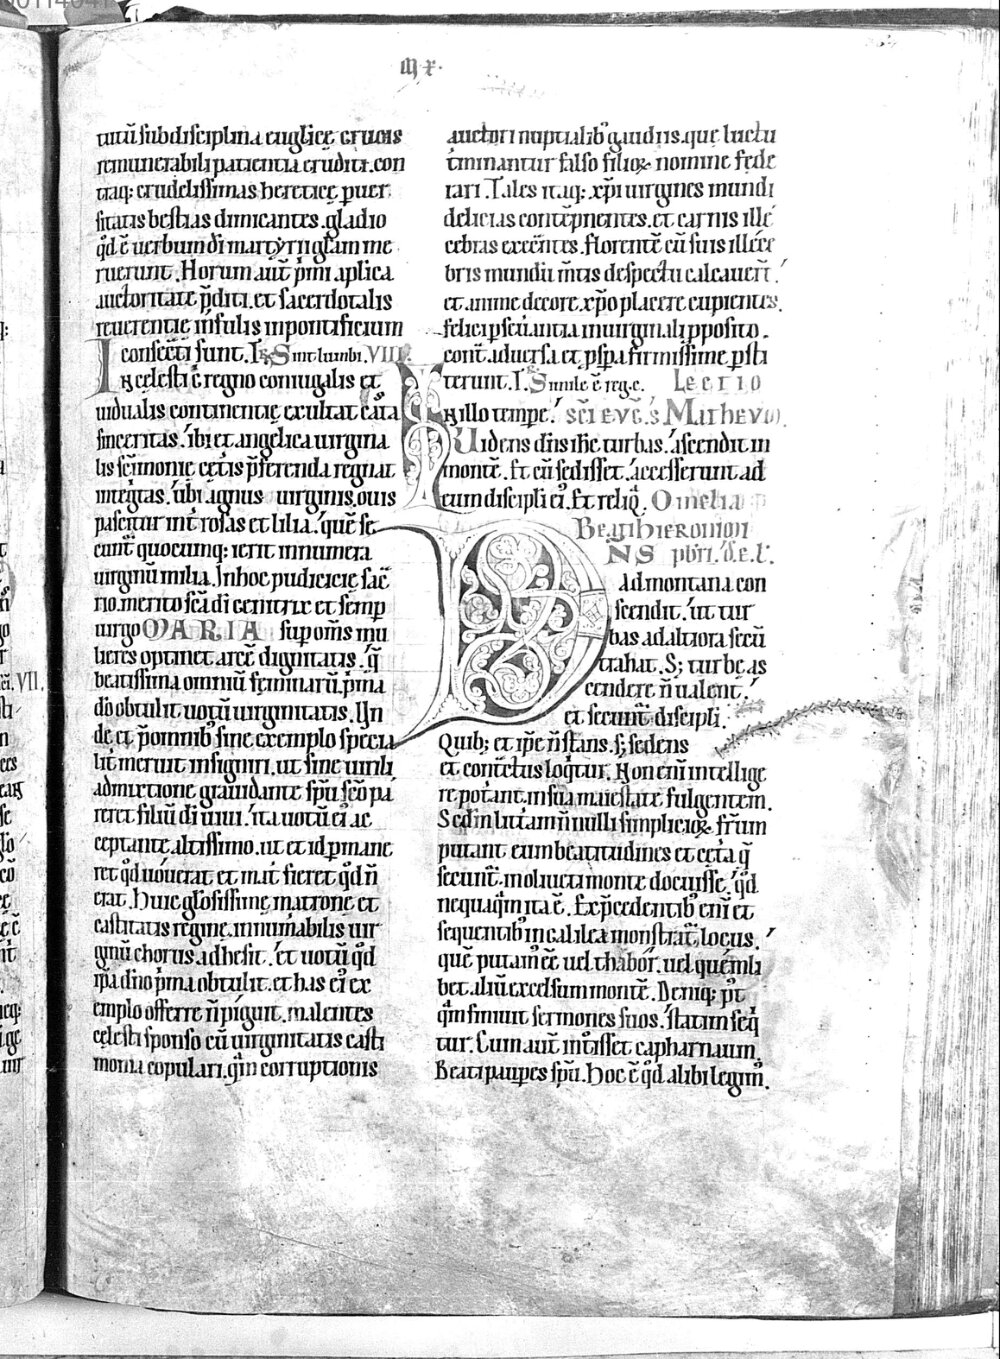 M x.
tutū subdisciplina euglicę crucis
remunerabili patientia eruditi. con
traq; crudelissimas hereticę puer
sitatis bestias dimicantes. gladio
qd ē uerbum di martyrii glam me
ruerunt. Horum aut̄ pmi aplica
auctoritate p̄diti. et sacerdotalis
reuerentię infulis in pontificium
consecti sunt. R̄ Sint lumbi. VIII.
In cęlesti ē regno coniugalis et
uidualis continentię exultat cāta
sinceritas. ibi et angelica uirgina
lis scīmonię cęt̄is p̄ferenda regnat
integtas. ubi agnus uirginis ouis
pascitur int̄ rosas et lilia. quē se
cunt̄ quocumq; ierit innumera
uirginū milia. In hoc pudicicię sac̄
rio. merito scā di genitrix et semp
uirgo MARIA sup oms mu
lieres optinet arcē dignitatis. q̄
beatissima omniū feminarū. pma
dō obtulit uotū uirginitatis. Un
de et p̄ omnib; sine exemplo specia
lit̄ meruit insigniri. ut sine uirili
admixtione grauidante spu scō pa
reret filiū di uiui. ita uotū ei ac
ceptante altissimo. ut et id pmane
ret qd uouerat et mat̄ fieret qd n̄
erat. Huic glosissimę matronę et
castitatis reginę. innumabilis uir
ginū chorus adhesit. et uotū qd
ipsa dno pma obtulit. et has ei ex
emplo offerre n̄ piguit. malentes
cęlesti sponso cū uirginitatis casti
monia copulari. qm corruptionis
auctori nuptialib; gaudiis. que luctu
t̄minantur falso filioꝝ nomine fede
rari. Tales itaq; xpi uirgines mundi
delicias contēpnentes. et carnis ille
cebras exeentes. florentē cū suis illece
bris mundū mtis despectu calcauert̄.
et anime decore. xpo placere cupientes.
felici pseuantia in uirginali pposito.
cont̄ aduersa et pspa firmissime psti
terunt. R̄. Simile ē reg. c. Lectio
In illo tempe. scī euḡ. s. Matheum.
Uidens dns ihc turbas. ascendit in
montē. Et cū sedisset. accesserunt ad
eum discipli ei. Et reliq̄. Omelia
Beati hieronimi
NS pbri. d. e. l.
ad montana con
scendit. ut tur
bas ad altiora secū
trahat. S; turbę as
cendere n̄ ualent.
et secunt̄ discipli.
Quib; et ipe n̄ stans. s; sedens
et contctus loqtur. Non eni intellige
re potant in sua maiestate fulgentem.
Sed in lutamū nulli simplicioꝝ frm
putant eum beatitudines et ceta q̄
secunt̄. in oliueti monte docuisse. qd
nequaqm ita ē. Ex p̄cedentib; eni et
sequentib; in galilea monstrat̄ locus.
quē putam eē uel thabor. uel quemli
bet aliū excelsum montē. Deniq; pt
qm finiuit sermones suos. statim seq
tur. Cum aut̄ int̄sset capharnaum.
Beati paupes spu. Hoc ē qd alibi legim.